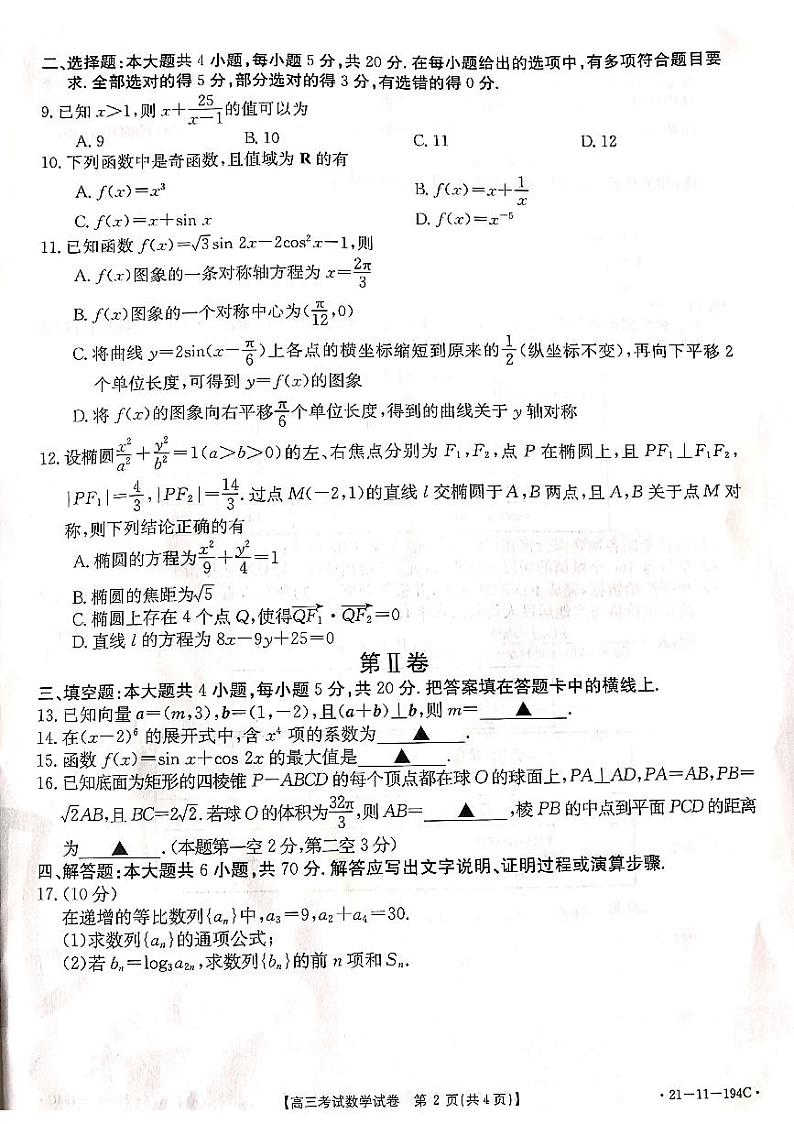 二、选择题:本大题共4小题,每小题5分,共20分.在每小题给出的选项中,有多项符合题目要
求.全部选对的得5分,部分选对的得3分,有选错的得0分.
9.已知x>1,则x+25/(x-1)的值可以为
A.9 B.10 C.11 D.12
10.下列函数中是奇函数,且值域为R的有
A. f(x)=x³ B. f(x)=x+1/x
C. f(x)=x+sin x D. f(x)=x⁻⁵
11.已知函数f(x)=√3sin 2x-2cos²x-1,则
A. f(x)图象的一条对称轴方程为x=2π/3
B. f(x)图象的一个对称中心为(π/12,0)
C.将曲线y=2sin(x-π/6)上各点的横坐标缩短到原来的1/2(纵坐标不变),再向下平移2
个单位长度,可得到y=f(x)的图象
D.将f(x)的图象向右平移π/6个单位长度,得到的曲线关于y轴对称
12.设椭圆x²/a²+y²/b²=1(a>b>0)的左、右焦点分别为F₁,F₂,点P在椭圆上,且PF₁⊥F₁F₂,
|PF₁|=4/3,|PF₂|=14/3.过点M(-2,1)的直线l交椭圆于A,B两点,且A,B关于点M对
称,则下列结论正确的有
A.椭圆的方程为x²/9+y²/4=1
B.椭圆的焦距为√5
C.椭圆上存在4个点Q,使得QF₁·QF₂=0
D.直线l的方程为8x-9y+25=0
第Ⅱ卷
三、填空题:本大题共4小题,每小题5分,共20分.把答案填在答题卡中的横线上.
13.已知向量a=(m,3),b=(1,-2),且(a+b)⊥b,则m=▲.
14.在(x-2)⁶的展开式中,含x⁴项的系数为▲.
15.函数f(x)=sin x+cos 2x的最大值是▲.
16.已知底面为矩形的四棱锥P-ABCD的每个顶点都在球O的球面上,PA⊥AD,PA=AB,PB=
√2AB,且BC=2√2.若球O的体积为32π/3,则AB=▲,棱PB的中点到平面PCD的距离
为▲.(本题第一空2分,第二空3分)
四、解答题:本大题共6小题,共70分.解答应写出文字说明、证明过程或演算步骤.
17.(10分)
在递增的等比数列{aₙ}中,a₃=9,a₂+a₄=30.
(1)求数列{aₙ}的通项公式;
(2)若bₙ=log₃a₂ₙ,求数列{bₙ}的前n项和Sₙ.
【高三考试数学试卷 第2页(共4页)】
·21-11-194C·